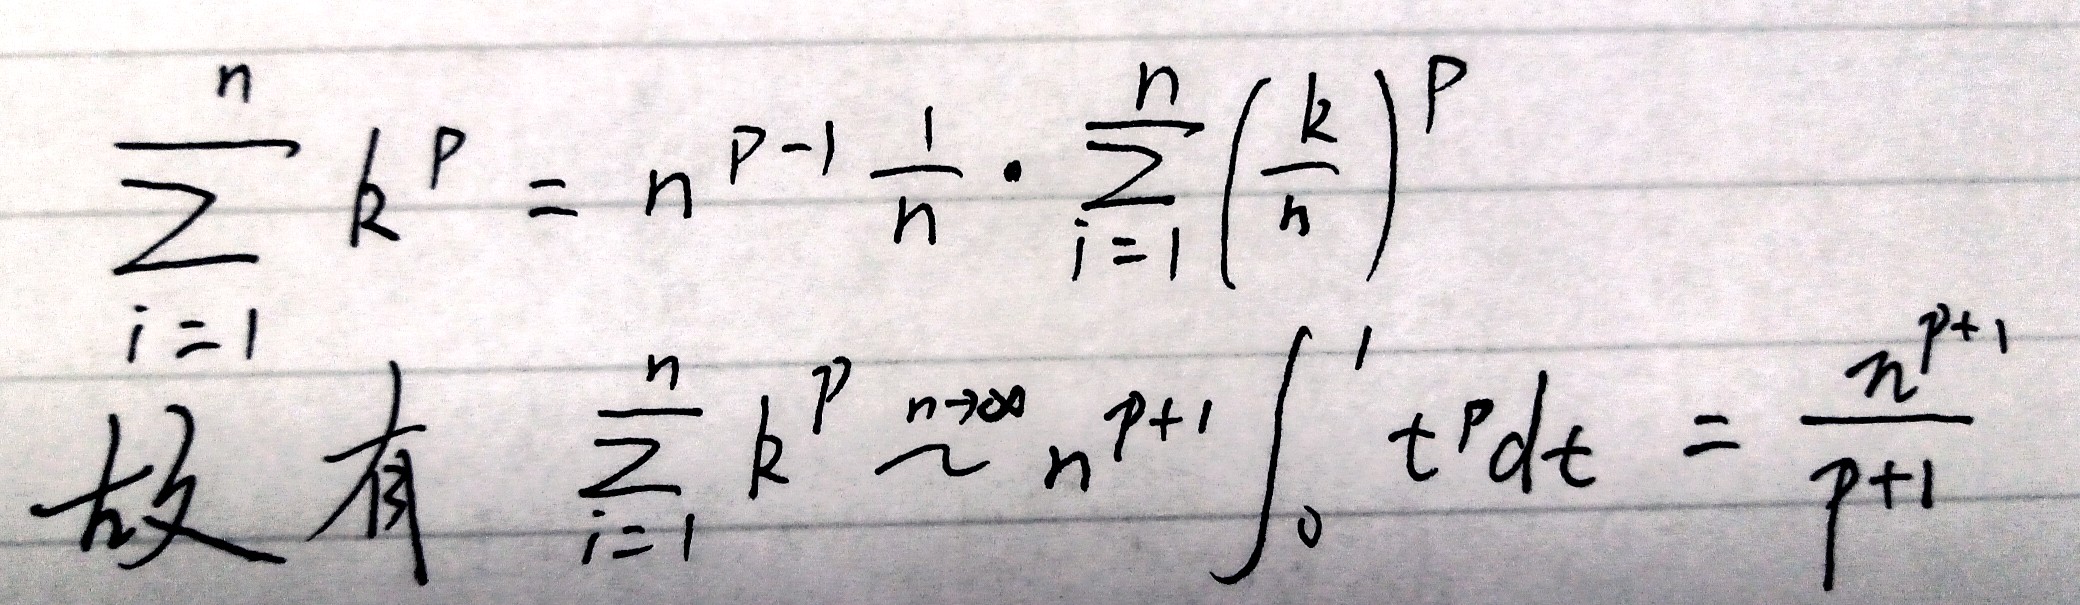 $\sum_{i=1}^{n} k^p = n^{p-1} \frac{1}{n} \cdot \sum_{i=1}^{n} \left( \frac{k}{n} \right)^p$
故有 $\sum_{i=1}^{n} k^p \overset{n \to \infty}{\sim} n^{p+1} \int_0^1 t^p dt = \frac{n^{p+1}}{p+1}$